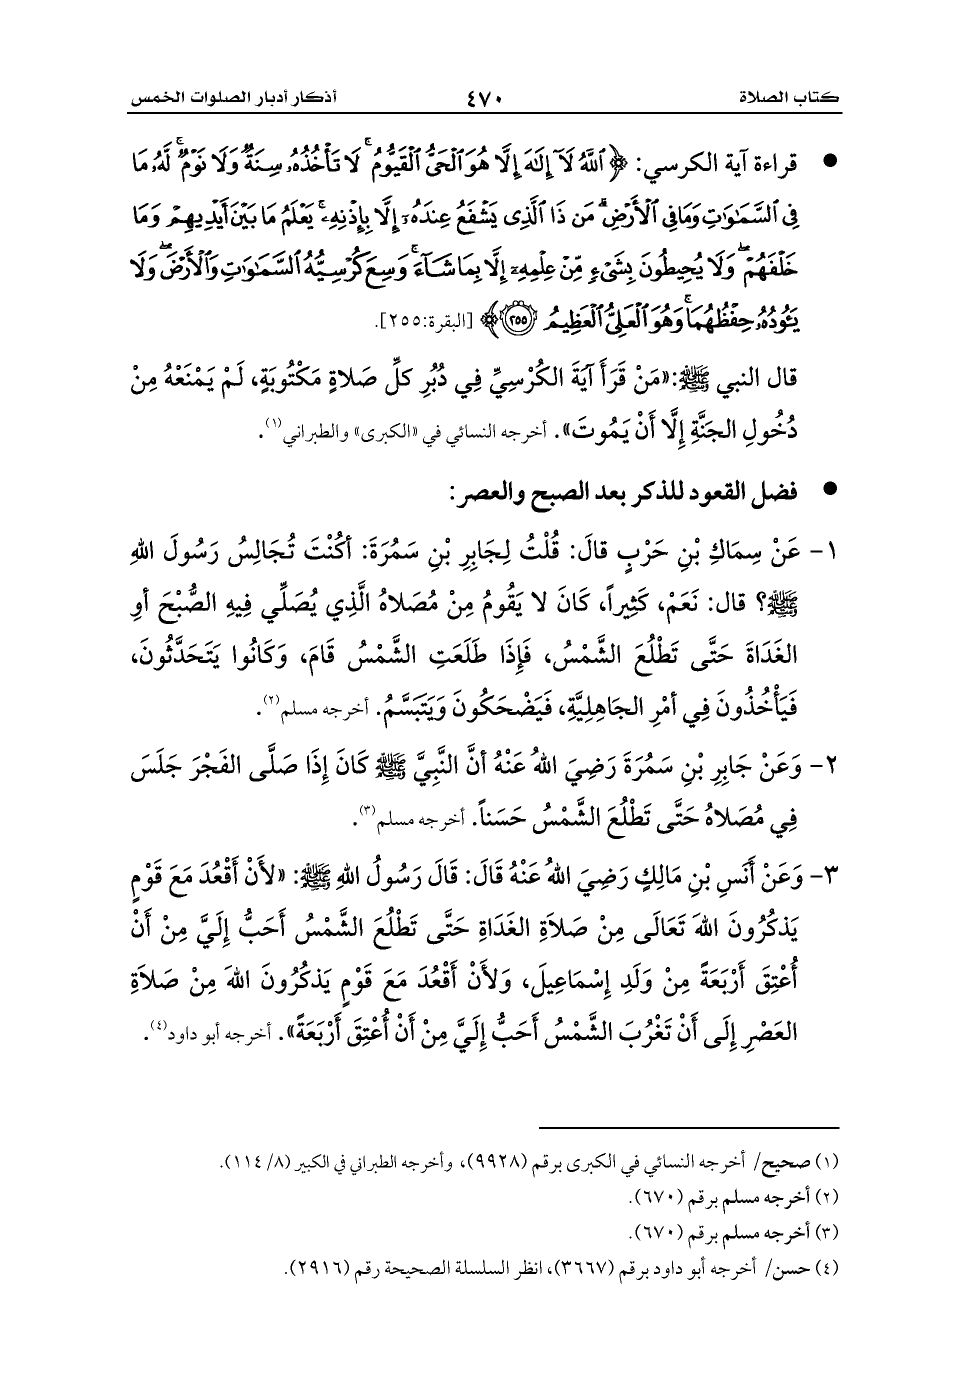 كتاب الصلاة ٤٧٠ أذكار أدبار الصلوات الخمس
● قراءة آية الكرسي: ﴿ ٱللَّهُ لَآ إِلَٰهَ إِلَّا هُوَ ٱلْحَىُّ ٱلْقَيُّومُ ۚ لَا تَأْخُذُهُۥ سِنَةٌ وَلَا نَوْمٌ ۚ لَّهُۥ مَا
فِى ٱلسَّمَٰوَٰتِ وَمَا فِى ٱلْأَرْضِ ۗ مَن ذَا ٱلَّذِى يَشْفَعُ عِندَهُۥٓ إِلَّا بِإِذْنِهِۦ ۚ يَعْلَمُ مَا بَيْنَ أَيْدِيهِمْ وَمَا
خَلْفَهُمْ ۖ وَلَا يُحِيطُونَ بِشَىْءٍ مِّنْ عِلْمِهِۦٓ إِلَّا بِمَا شَآءَ ۚ وَسِعَ كُرْسِيُّهُ ٱلسَّمَٰوَٰتِ وَٱلْأَرْضَ ۖ وَلَا
يَـُٔودُهُۥ حِفْظُهُمَا ۚ وَهُوَ ٱلْعَلِىُّ ٱلْعَظِيمُ ٢٥٥ ﴾ [البقرة:٢٥٥].
قال النبي ﷺ:«مَنْ قَرَأَ آيَةَ الكُرْسِيِّ فِي دُبُرِ كلِّ صَلاةٍ مَكْتُوبَةٍ، لَمْ يَمْنَعْهُ مِنْ
دُخُولِ الجَنَّةِ إِلَّا أَنْ يَمُوتَ». أخرجه النسائي في «الكبرى» والطبراني(١).
● فضل القعود للذكر بعد الصبح والعصر:
١- عَنْ سِمَاكِ بْنِ حَرْبٍ قالَ: قُلْتُ لِجَابِرِ بْنِ سَمُرَةَ: أكُنْتَ تُجَالِسُ رَسُولَ اللهِ
ﷺ؟ قال: نَعَمْ، كَثِيراً، كَانَ لا يَقُومُ مِنْ مُصَلاهُ الَّذِي يُصَلِّي فِيهِ الصُّبْحَ أوِ
الغَدَاةَ حَتَّى تَطْلُعَ الشَّمْسُ، فَإِذَا طَلَعَتِ الشَّمْسُ قَامَ، وَكَانُوا يَتَحَدَّثُونَ،
فَيَأْخُذُونَ فِي أمْرِ الجَاهِلِيَّةِ، فَيَضْحَكُونَ وَيَتَبَسَّمُ. أخرجه مسلم(٢).
٢- وَعَنْ جَابِرِ بْنِ سَمُرَةَ رَضِيَ اللهُ عَنْهُ أنَّ النَّبِيَّ ﷺ كَانَ إِذَا صَلَّى الفَجْرَ جَلَسَ
فِي مُصَلاهُ حَتَّى تَطْلُعَ الشَّمْسُ حَسَناً. أخرجه مسلم(٣).
٣- وَعَنْ أَنَسِ بْنِ مَالِكٍ رَضِيَ اللهُ عَنْهُ قَالَ: قَالَ رَسُولُ اللهِ ﷺ: «لأنْ أَقْعُدَ مَعَ قَوْمٍ
يَذكُرُونَ اللهَ تَعَالَى مِنْ صَلاَةِ الغَدَاةِ حَتَّى تَطْلُعَ الشَّمْسُ أَحَبُّ إِلَيَّ مِنْ أَنْ
أُعْتِقَ أَرْبَعَةً مِنْ وَلَدِ إِسْمَاعِيلَ، وَلأنْ أَقْعُدَ مَعَ قَوْمٍ يَذكُرُونَ اللهَ مِنْ صَلاَةِ
العَصْرِ إِلَى أَنْ تَغْرُبَ الشَّمْسُ أَحَبُّ إِلَيَّ مِنْ أَنْ أُعْتِقَ أَرْبَعَةً». أخرجه أبو داود(٤).
(١) صحيح/ أخرجه النسائي في الكبرى برقم (٩٩٢٨)، وأخرجه الطبراني في الكبير (٨/ ١١٤).
(٢) أخرجه مسلم برقم (٦٧٠).
(٣) أخرجه مسلم برقم (٦٧٠).
(٤) حسن/ أخرجه أبو داود برقم (٣٦٦٧)، انظر السلسلة الصحيحة رقم (٢٩١٦).